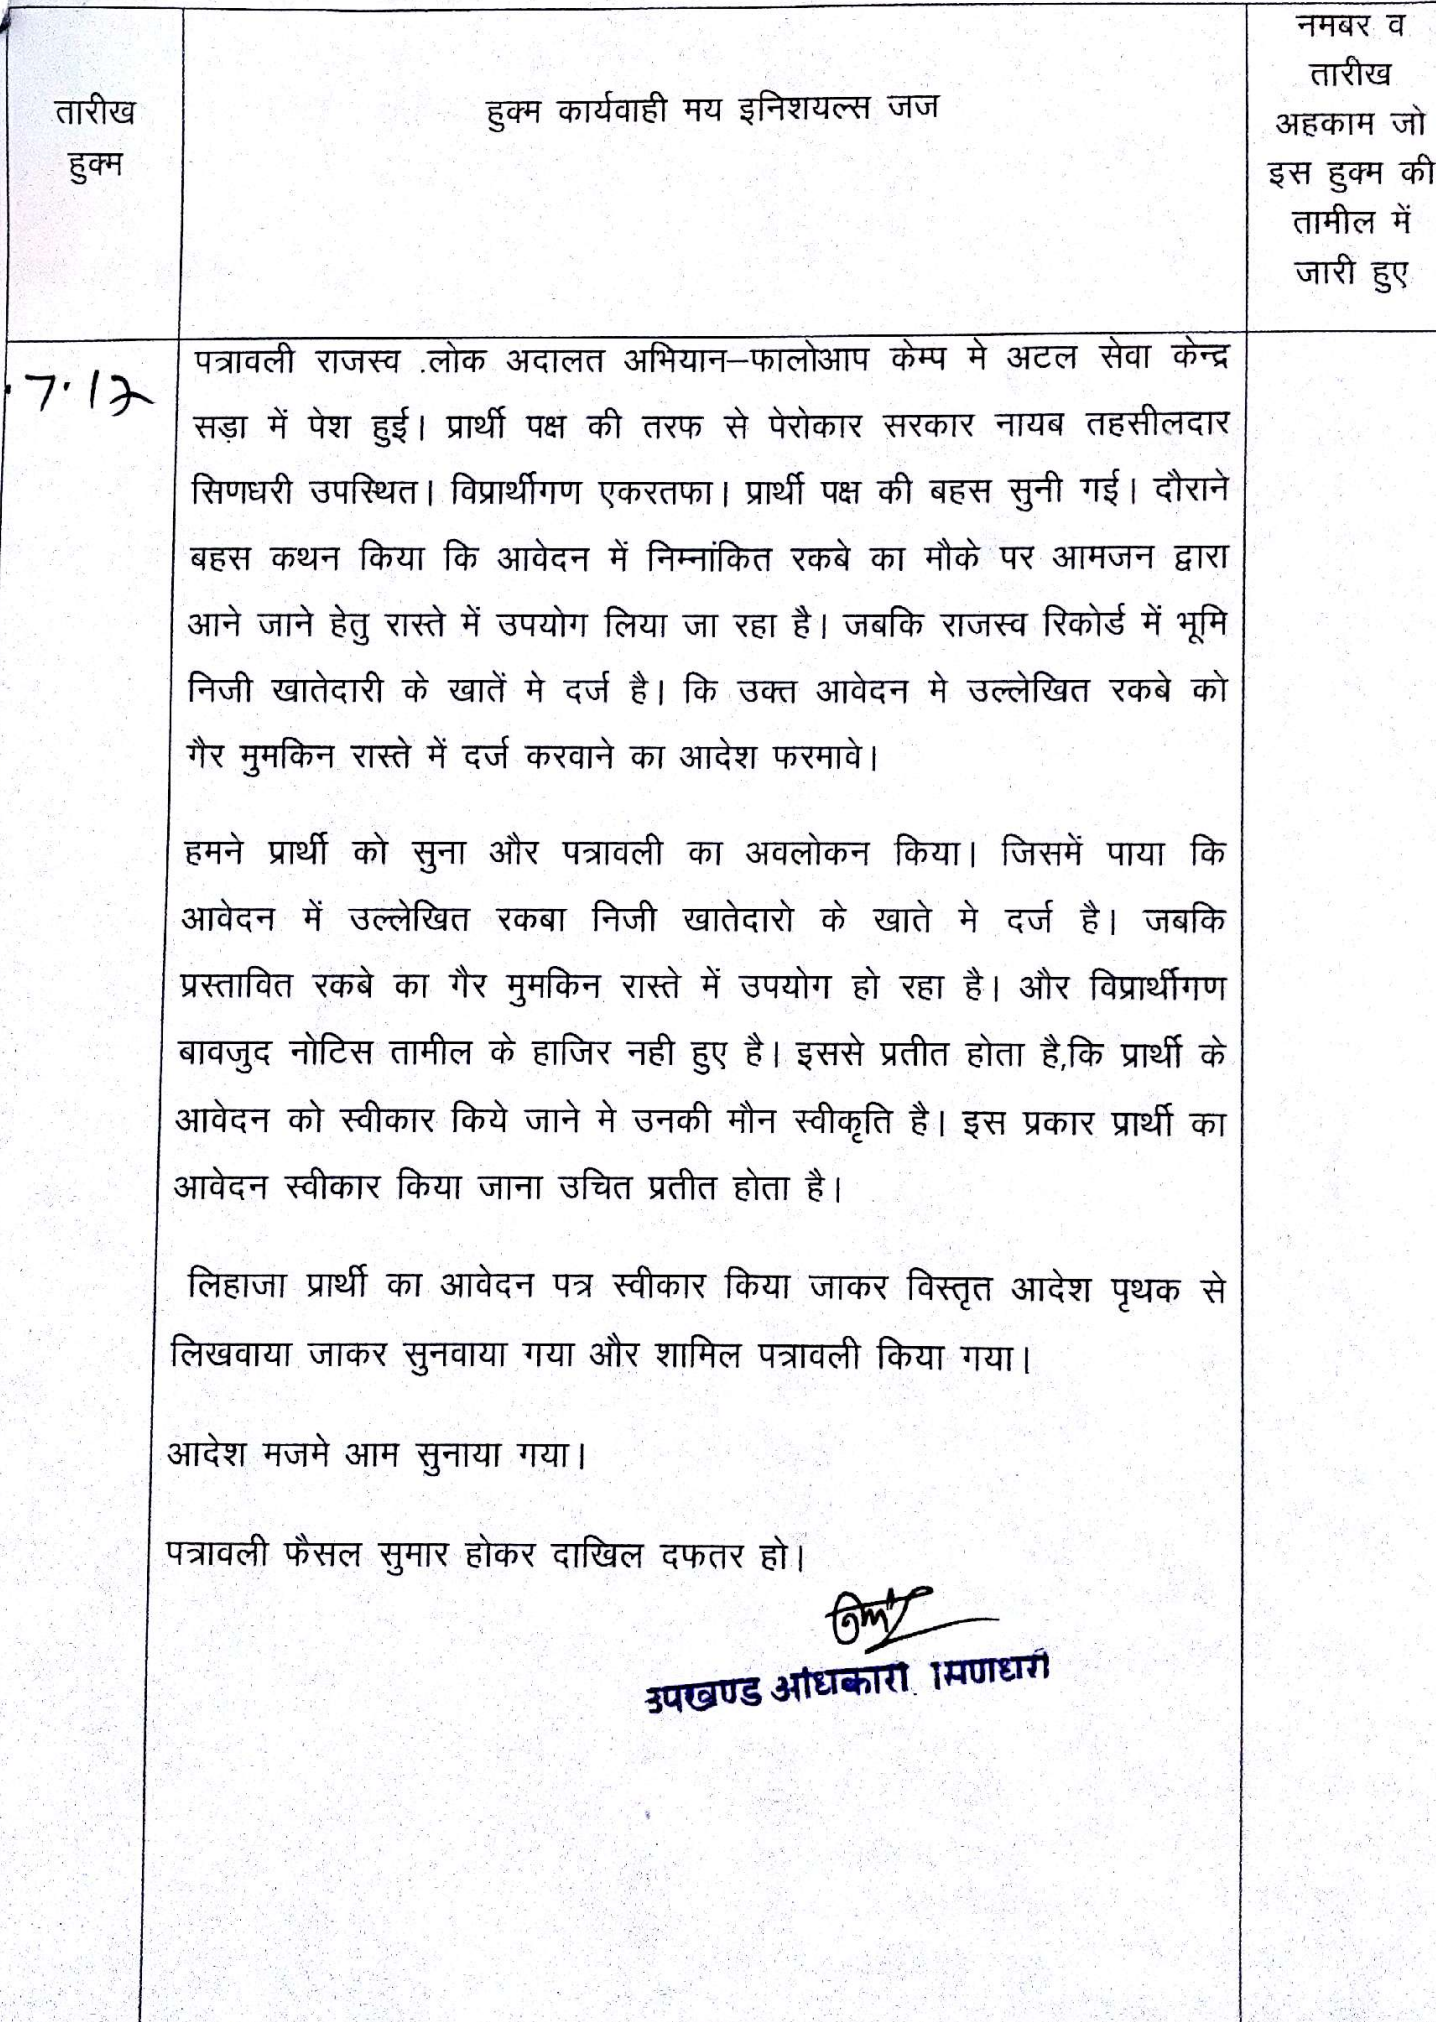 तारीख
हुक्म
हुक्म कार्यवाही मय इनिशयल्स जज
नमबर व
तारीख
अहकाम जो
इस हुक्म की
तामील में
जारी हुए
.7.12
पत्रावली राजस्व .लोक अदालत अभियान–फालोआप केम्प मे अटल सेवा केन्द्र
सड़ा में पेश हुई। प्रार्थी पक्ष की तरफ से पेरोकार सरकार नायब तहसीलदार
सिणधरी उपस्थित। विप्रार्थीगण एकरतफा। प्रार्थी पक्ष की बहस सुनी गई। दौराने
बहस कथन किया कि आवेदन में निम्नांकित रकबे का मौके पर आमजन द्वारा
आने जाने हेतु रास्ते में उपयोग लिया जा रहा है। जबकि राजस्व रिकोर्ड में भूमि
निजी खातेदारी के खातें मे दर्ज है। कि उक्त आवेदन मे उल्लेखित रकबे को
गैर मुमकिन रास्ते में दर्ज करवाने का आदेश फरमावे।
हमने प्रार्थी को सुना और पत्रावली का अवलोकन किया। जिसमें पाया कि
आवेदन में उल्लेखित रकबा निजी खातेदारो के खाते मे दर्ज है। जबकि
प्रस्तावित रकबे का गैर मुमकिन रास्ते में उपयोग हो रहा है। और विप्रार्थीगण
बावजुद नोटिस तामील के हाजिर नही हुए है। इससे प्रतीत होता है,कि प्रार्थी के
आवेदन को स्वीकार किये जाने मे उनकी मौन स्वीकृति है। इस प्रकार प्रार्थी का
आवेदन स्वीकार किया जाना उचित प्रतीत होता है।
लिहाजा प्रार्थी का आवेदन पत्र स्वीकार किया जाकर विस्तृत आदेश पृथक से
लिखवाया जाकर सुनवाया गया और शामिल पत्रावली किया गया।
आदेश मजमे आम सुनाया गया।
पत्रावली फैसल सुमार होकर दाखिल दफतर हो।
उपखण्ड अधिकारी सिणधरी